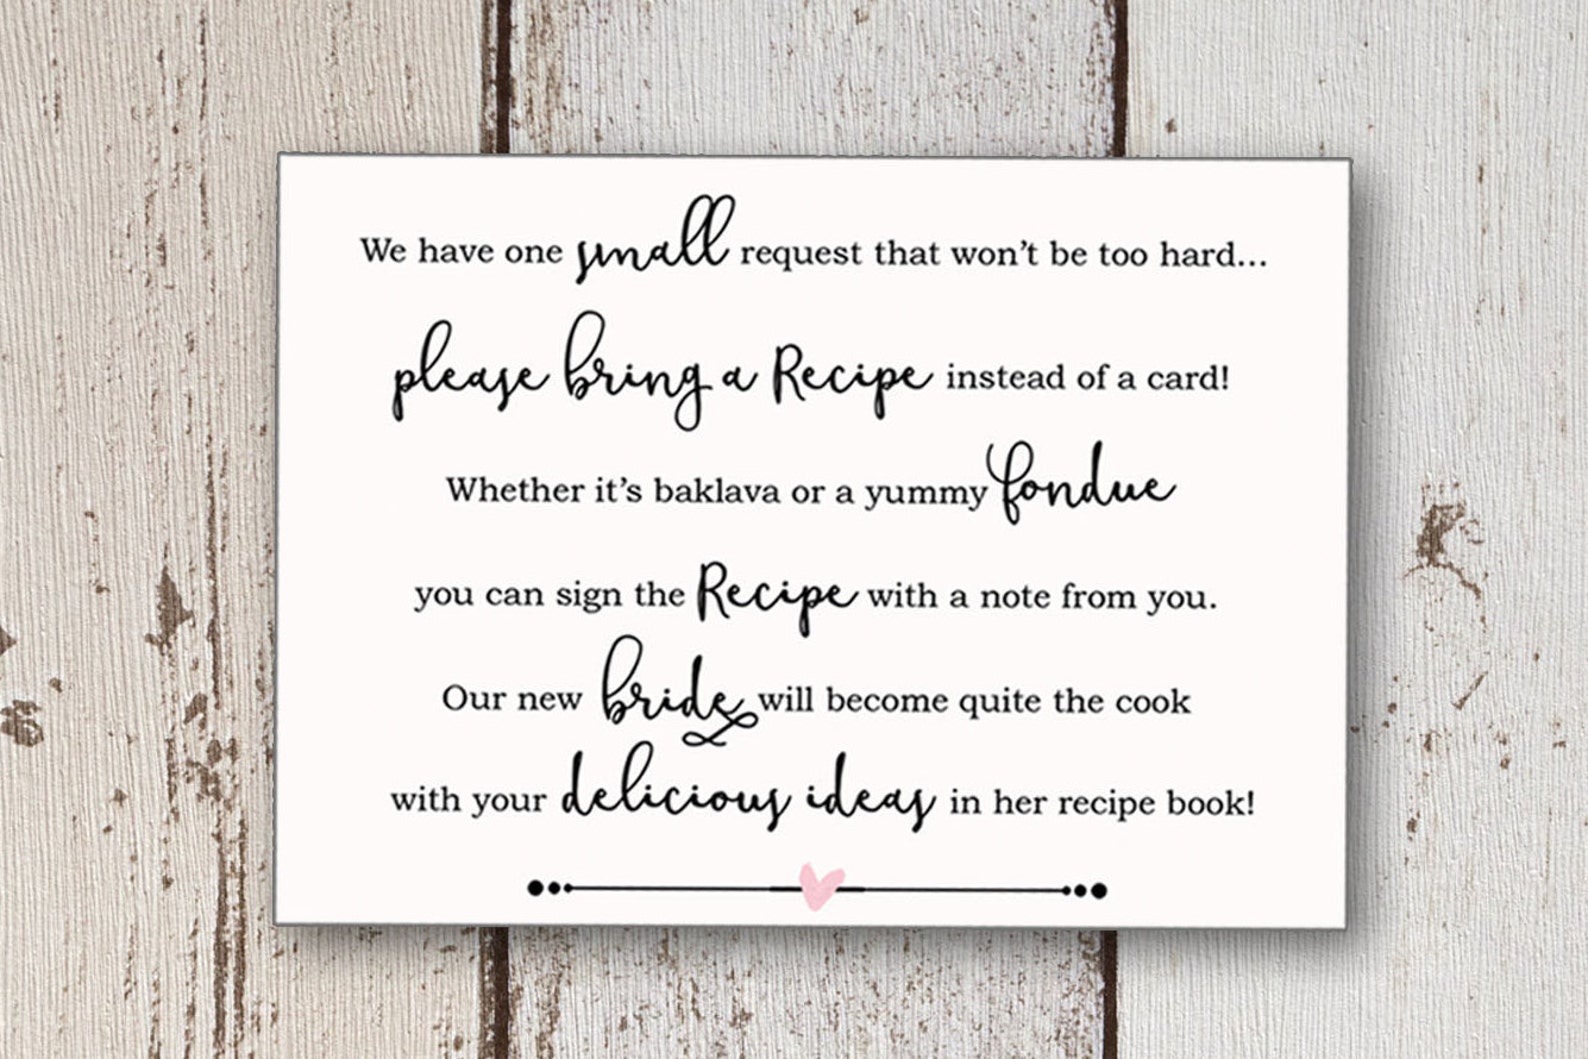 We have one small request that won't be too hard...
please bring a Recipe instead of a card!
Whether it's baklava or a yummy fondue
you can sign the Recipe with a note from you.
Our new bride will become quite the cook
with your delicious ideas in her recipe book!